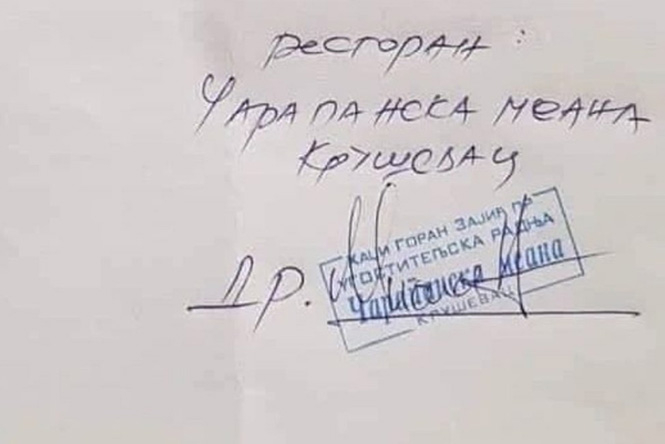 ресторан:
Чарапанска меана
Крушевац
Др.
ХАЏИ ГОРАН ЗАЈИЋ ПР
УГОСТИТЕЉСКА РАДЊА
Чарапанска меана
КРУШЕВАЦ